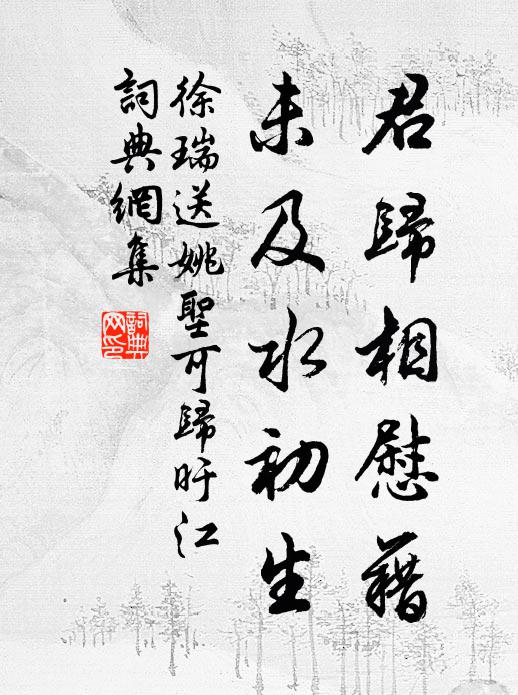 君歸相慰藉
未及水初生
徐瑞送姚聖可歸旴江
詞典網集
詞典
网印